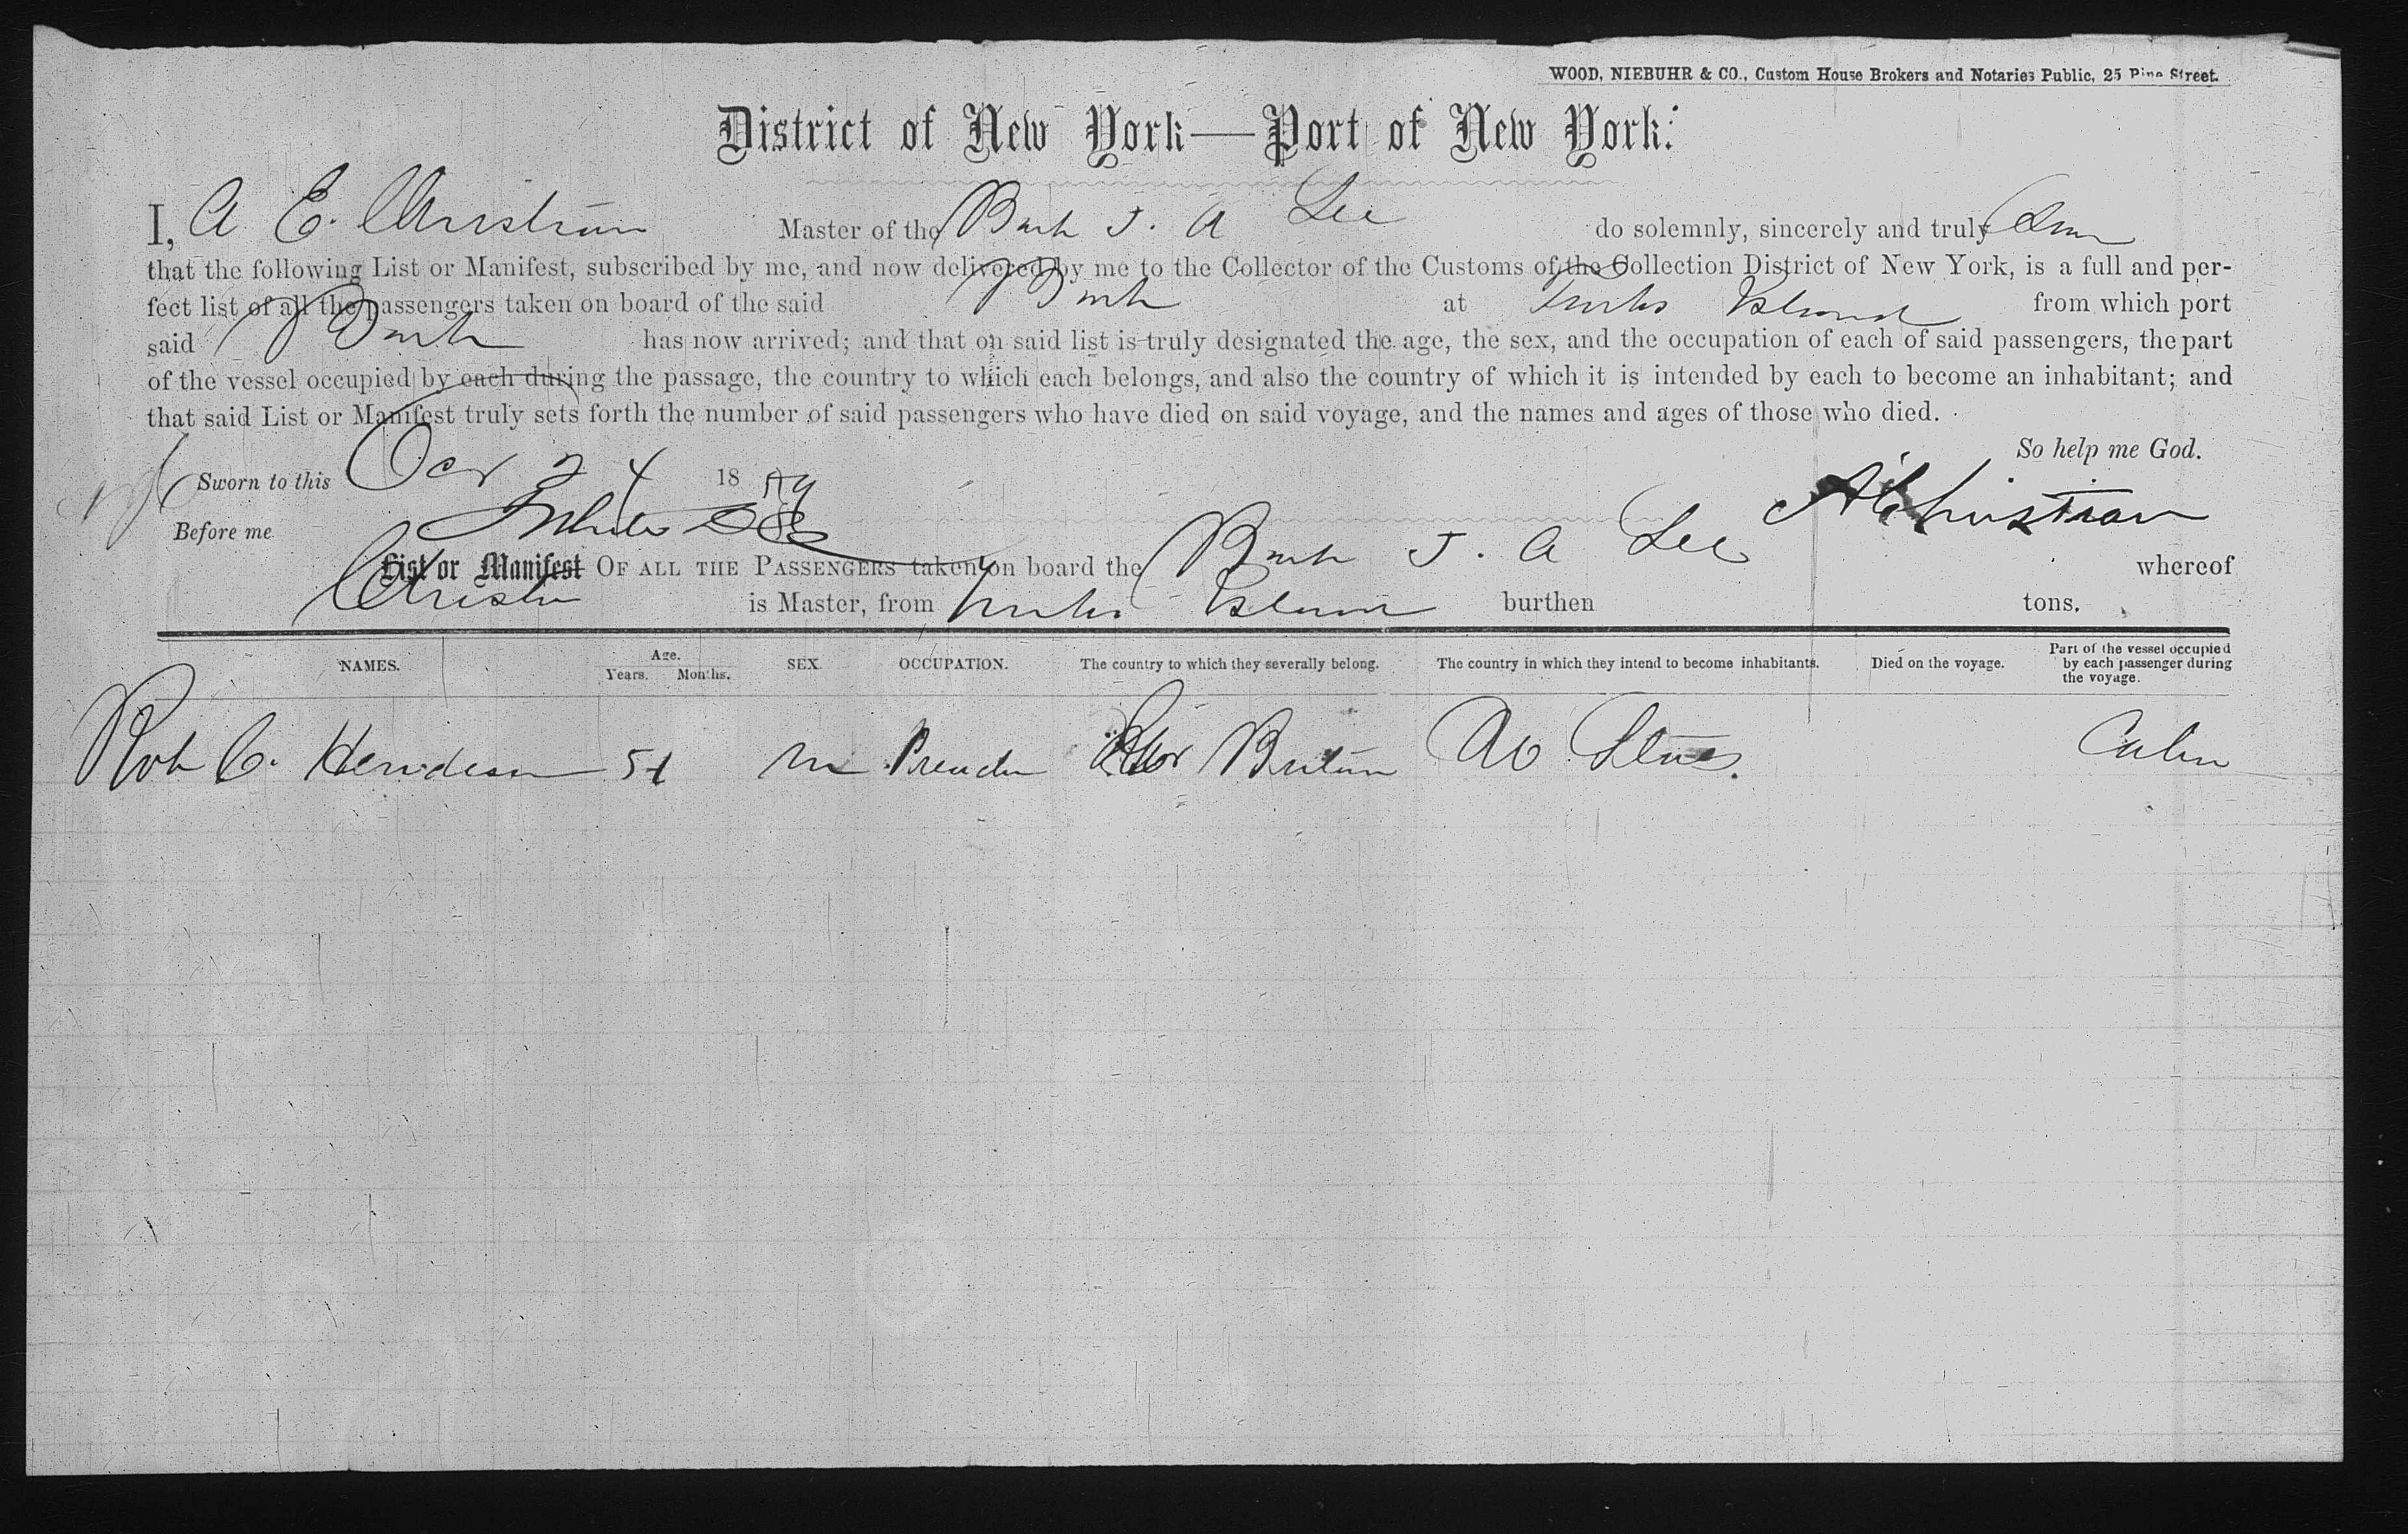 WOOD, NIEBUHR & CO., Custom House Brokers and Notaries Public, 25 Pine Street.
District of New York—Port of New York:
I, A E. Christian Master of the Bark J. A Lee do solemnly, sincerely and truly
that the following List or Manifest, subscribed by me, and now delivered by me to the Collector of the Customs of the Collection District of New York, is a full and per-
fect list of all the passengers taken on board of the said Bark at Turks Island from which port
said Bark has now arrived; and that on said list is truly designated the age, the sex, and the occupation of each of said passengers, the part
of the vessel occupied by each during the passage, the country to which each belongs, and also the country of which it is intended by each to become an inhabitant; and
that said List or Manifest truly sets forth the number of said passengers who have died on said voyage, and the names and ages of those who died.
So help me God.
Sworn to this Oct 24 1879
A E Christian
Before me
List or Manifest OF ALL THE PASSENGERS taken on board the Bark J. A Lee whereof
Christian is Master, from Turks Island burthen tons.
NAMES. Age. Years. Months. SEX. OCCUPATION. The country to which they severally belong. The country in which they intend to become inhabitants. Died on the voyage. Part of the vessel occupied by each passenger during the voyage.
Rob C. Henderson 51 m Preacher Britain States. Cabin